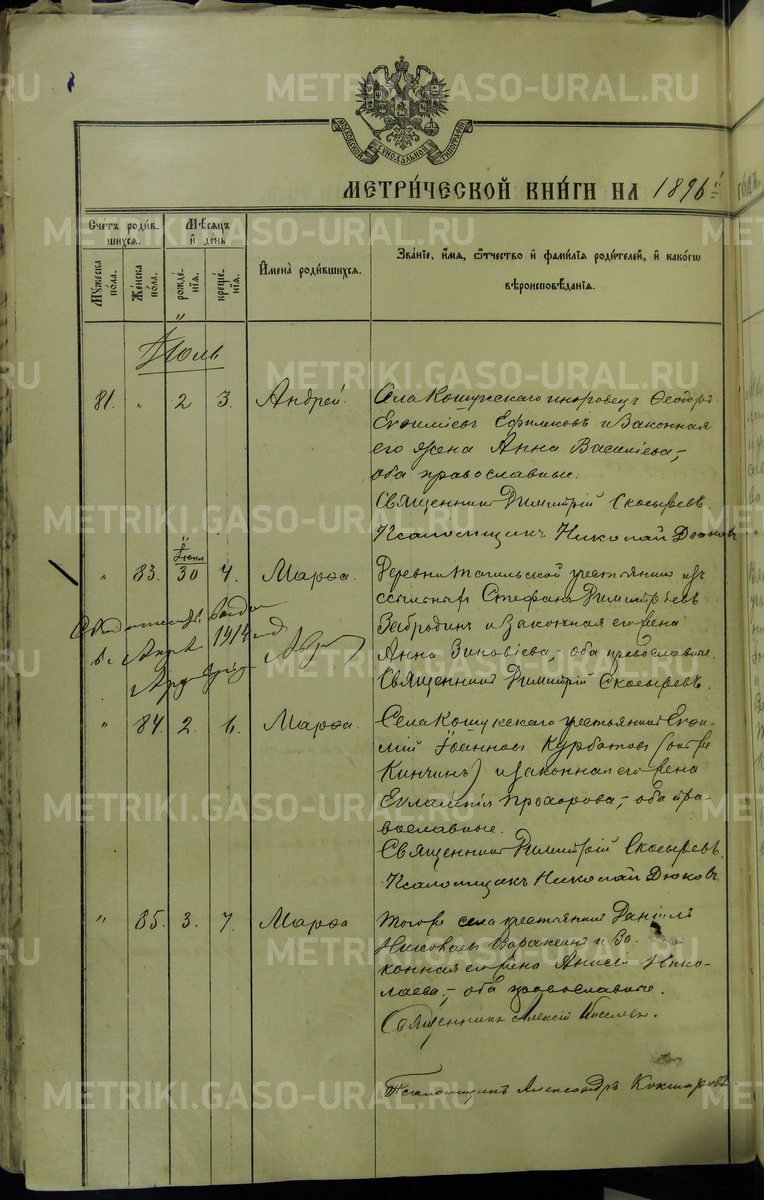 METRIKI.GASO-URAL.RU
МОСКОВСКОЙ СѴНОДАЛЬНОЙ ТИПОГРАФІИ
МЕТРИ́ЧЕСКОЙ КНИ́ГИ НА 1896 й
Счетъ роди́вшихся.
Мѣсяцъ и день
Мꙋжеска по́ла.
Же́нска по́ла.
рожде́нія.
креще́нія.
Имена̀ роди́вшихся.
Зва́ніе, и҆́мя, ѻ҆́тчество и҆ фами́лія роди́телей, и҆ како́гѡ вѣроисповѣ́данія.
Іюль
81. " 2 3. Андрей.
Села Кошукскаго инородецъ Ѳеодоръ
Евфиміевъ Ефимковъ и законная
его жена Анна Василіева,-
оба православные.
Священникъ Димитрій Скосыревъ.
Псаломщикъ Николай Дюковъ
" 83. Іюня 30 4. Марѳа.
Деревни Тагильской крестьянинъ изъ
ссыльныхъ Стефанъ Димитріевъ
Забродинъ и законная его жена
Анна Зиновіева,- оба православные.
Священникъ Димитрій Скосыревъ.
1914
" 84. 2. 6. Марѳа.
Села Кошукскаго крестьянинъ Евѳи-
мій Іоанновъ Курбатовъ (онъ же
Кинчинъ) и законная его жена
Евлампія Прохорова,- оба пра-
вославные.
Священникъ Димитрій Скосыревъ.
Псаломщикъ Николай Дюковъ.
" 85. 3. 7. Марѳа
Того же села крестьянинъ Даніилъ
и за-
конная его жена Анисія Нико-
лаева,- оба православные.
Священникъ Алексій Киселевъ.
Псаломщикъ Александръ Кокшаровъ.